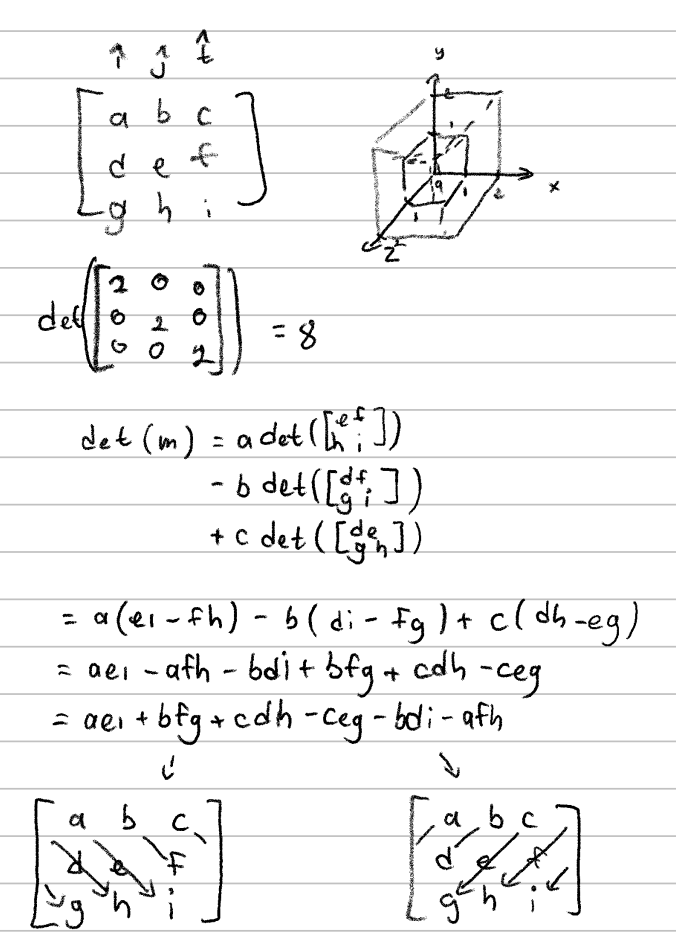 î ĵ k̂
a b c
d e f
g h i
y
2
1
1
1
2
x
z
det([2 0 0
0 2 0
0 0 2]) = 8
det (m) = a det([e f
h i])
- b det([d f
g i])
+ c det([d e
g h])
= a(ei - fh) - b(di - fg) + c(dh - eg)
= aei - afh - bdi + bfg + cdh - ceg
= aei + bfg + cdh - ceg - bdi - afh
a b c
d e f
g h i
a b c
d e f
g h i